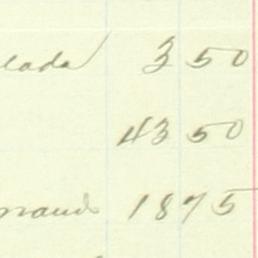 lada 3 50
43 50
naud 18 75